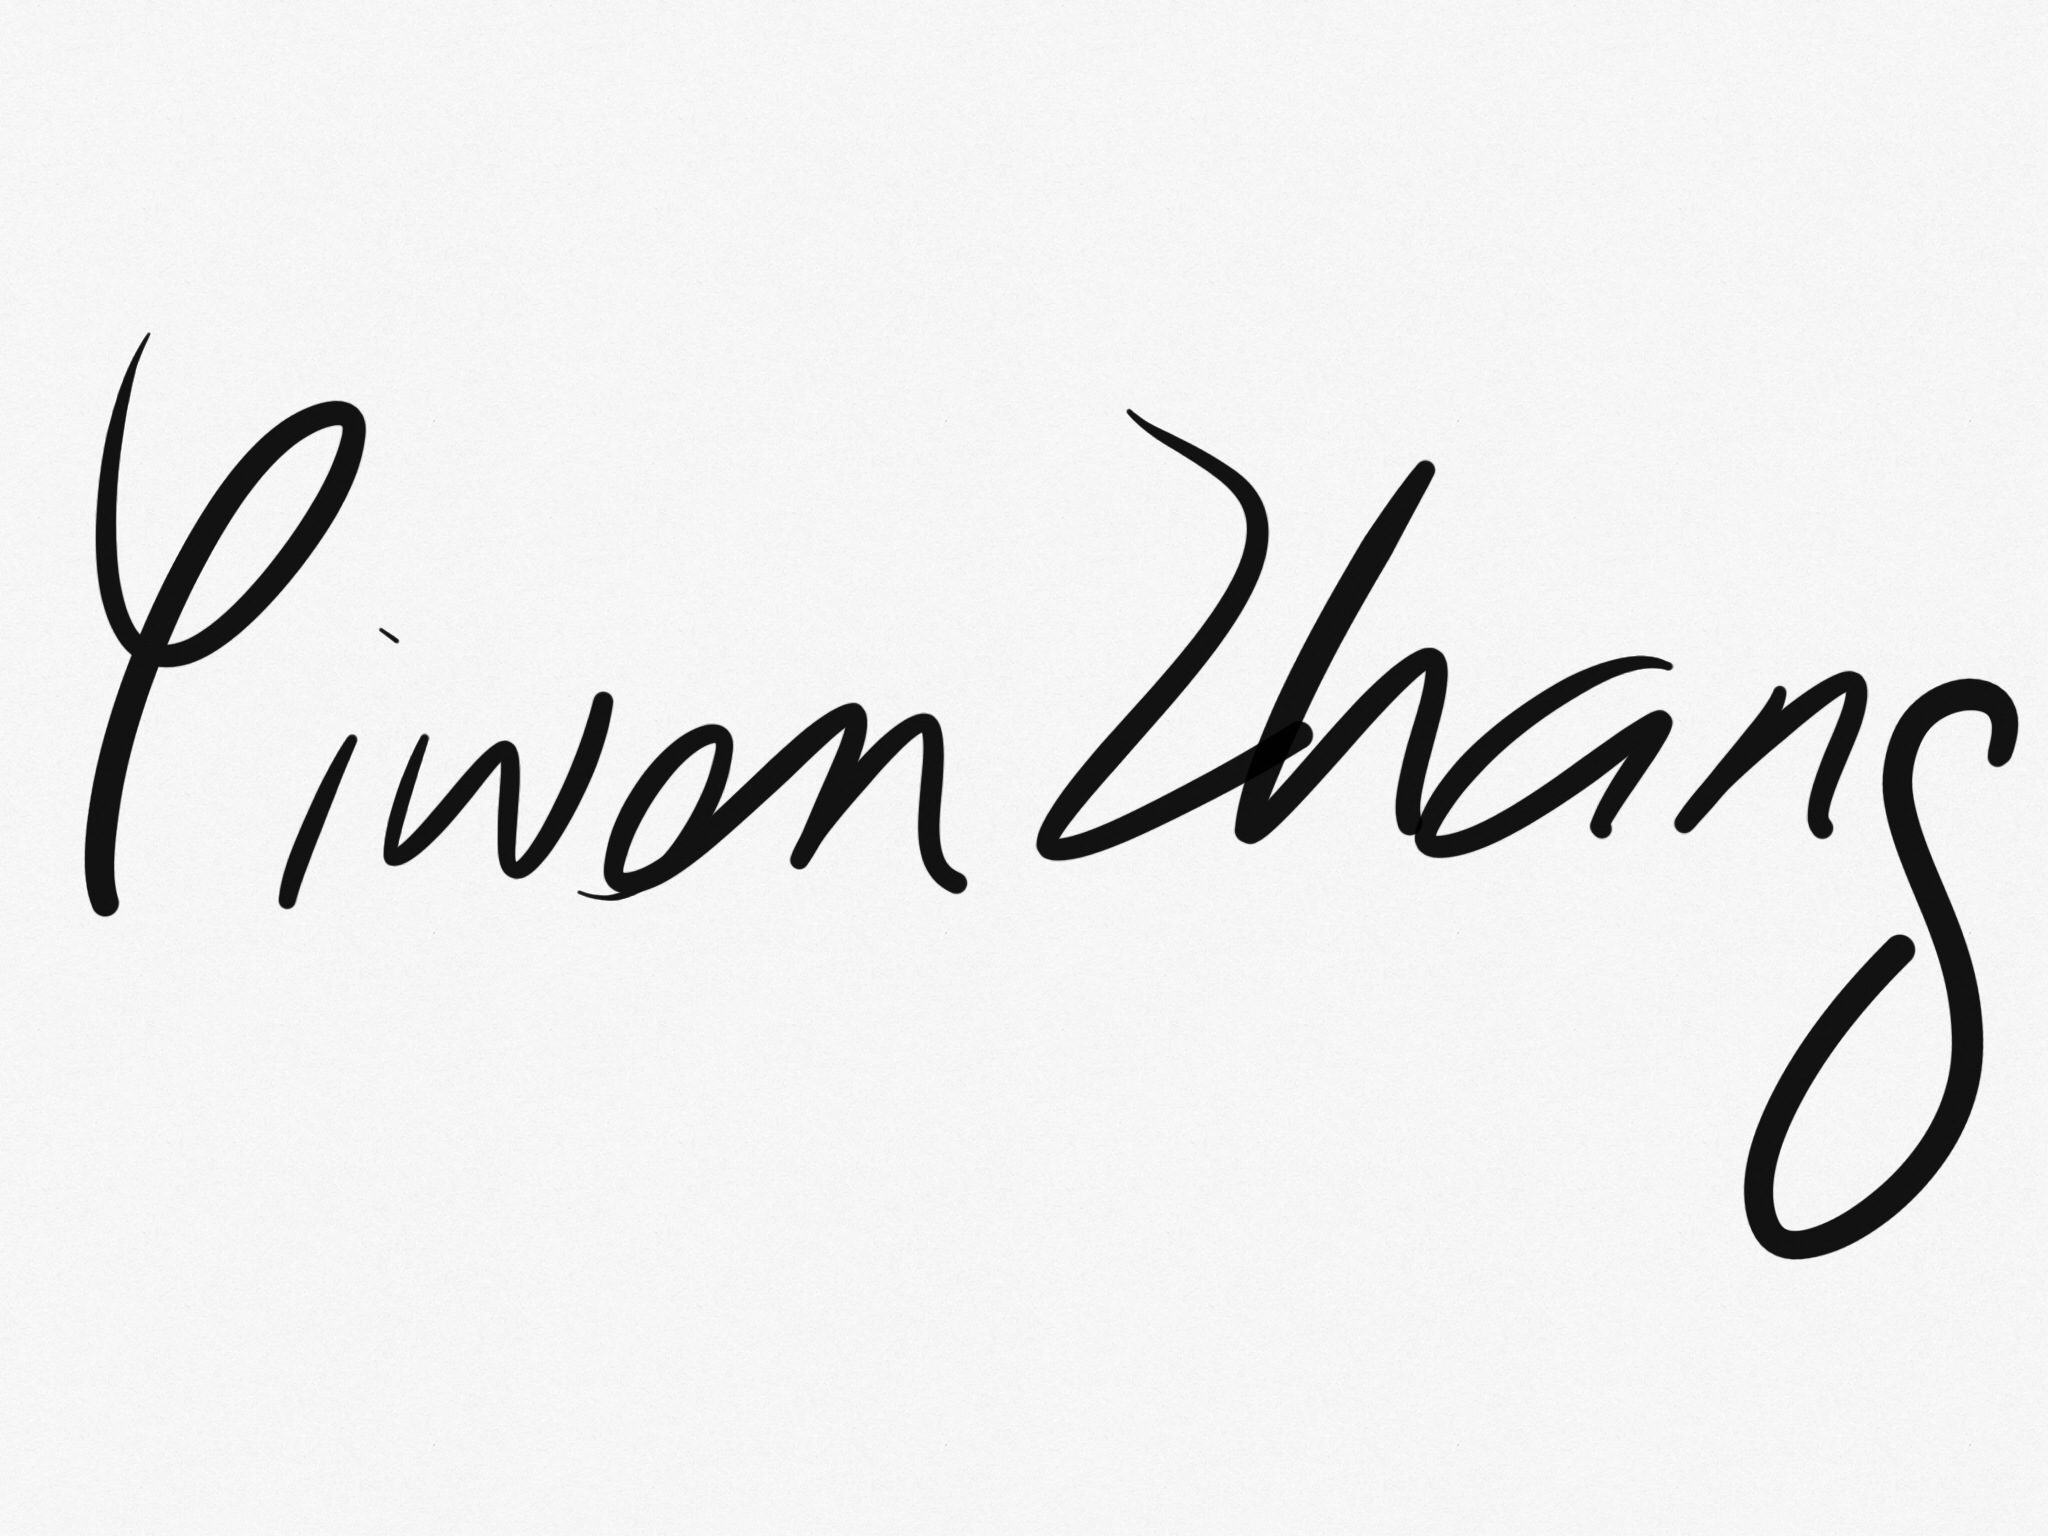 Yiwen Zhang